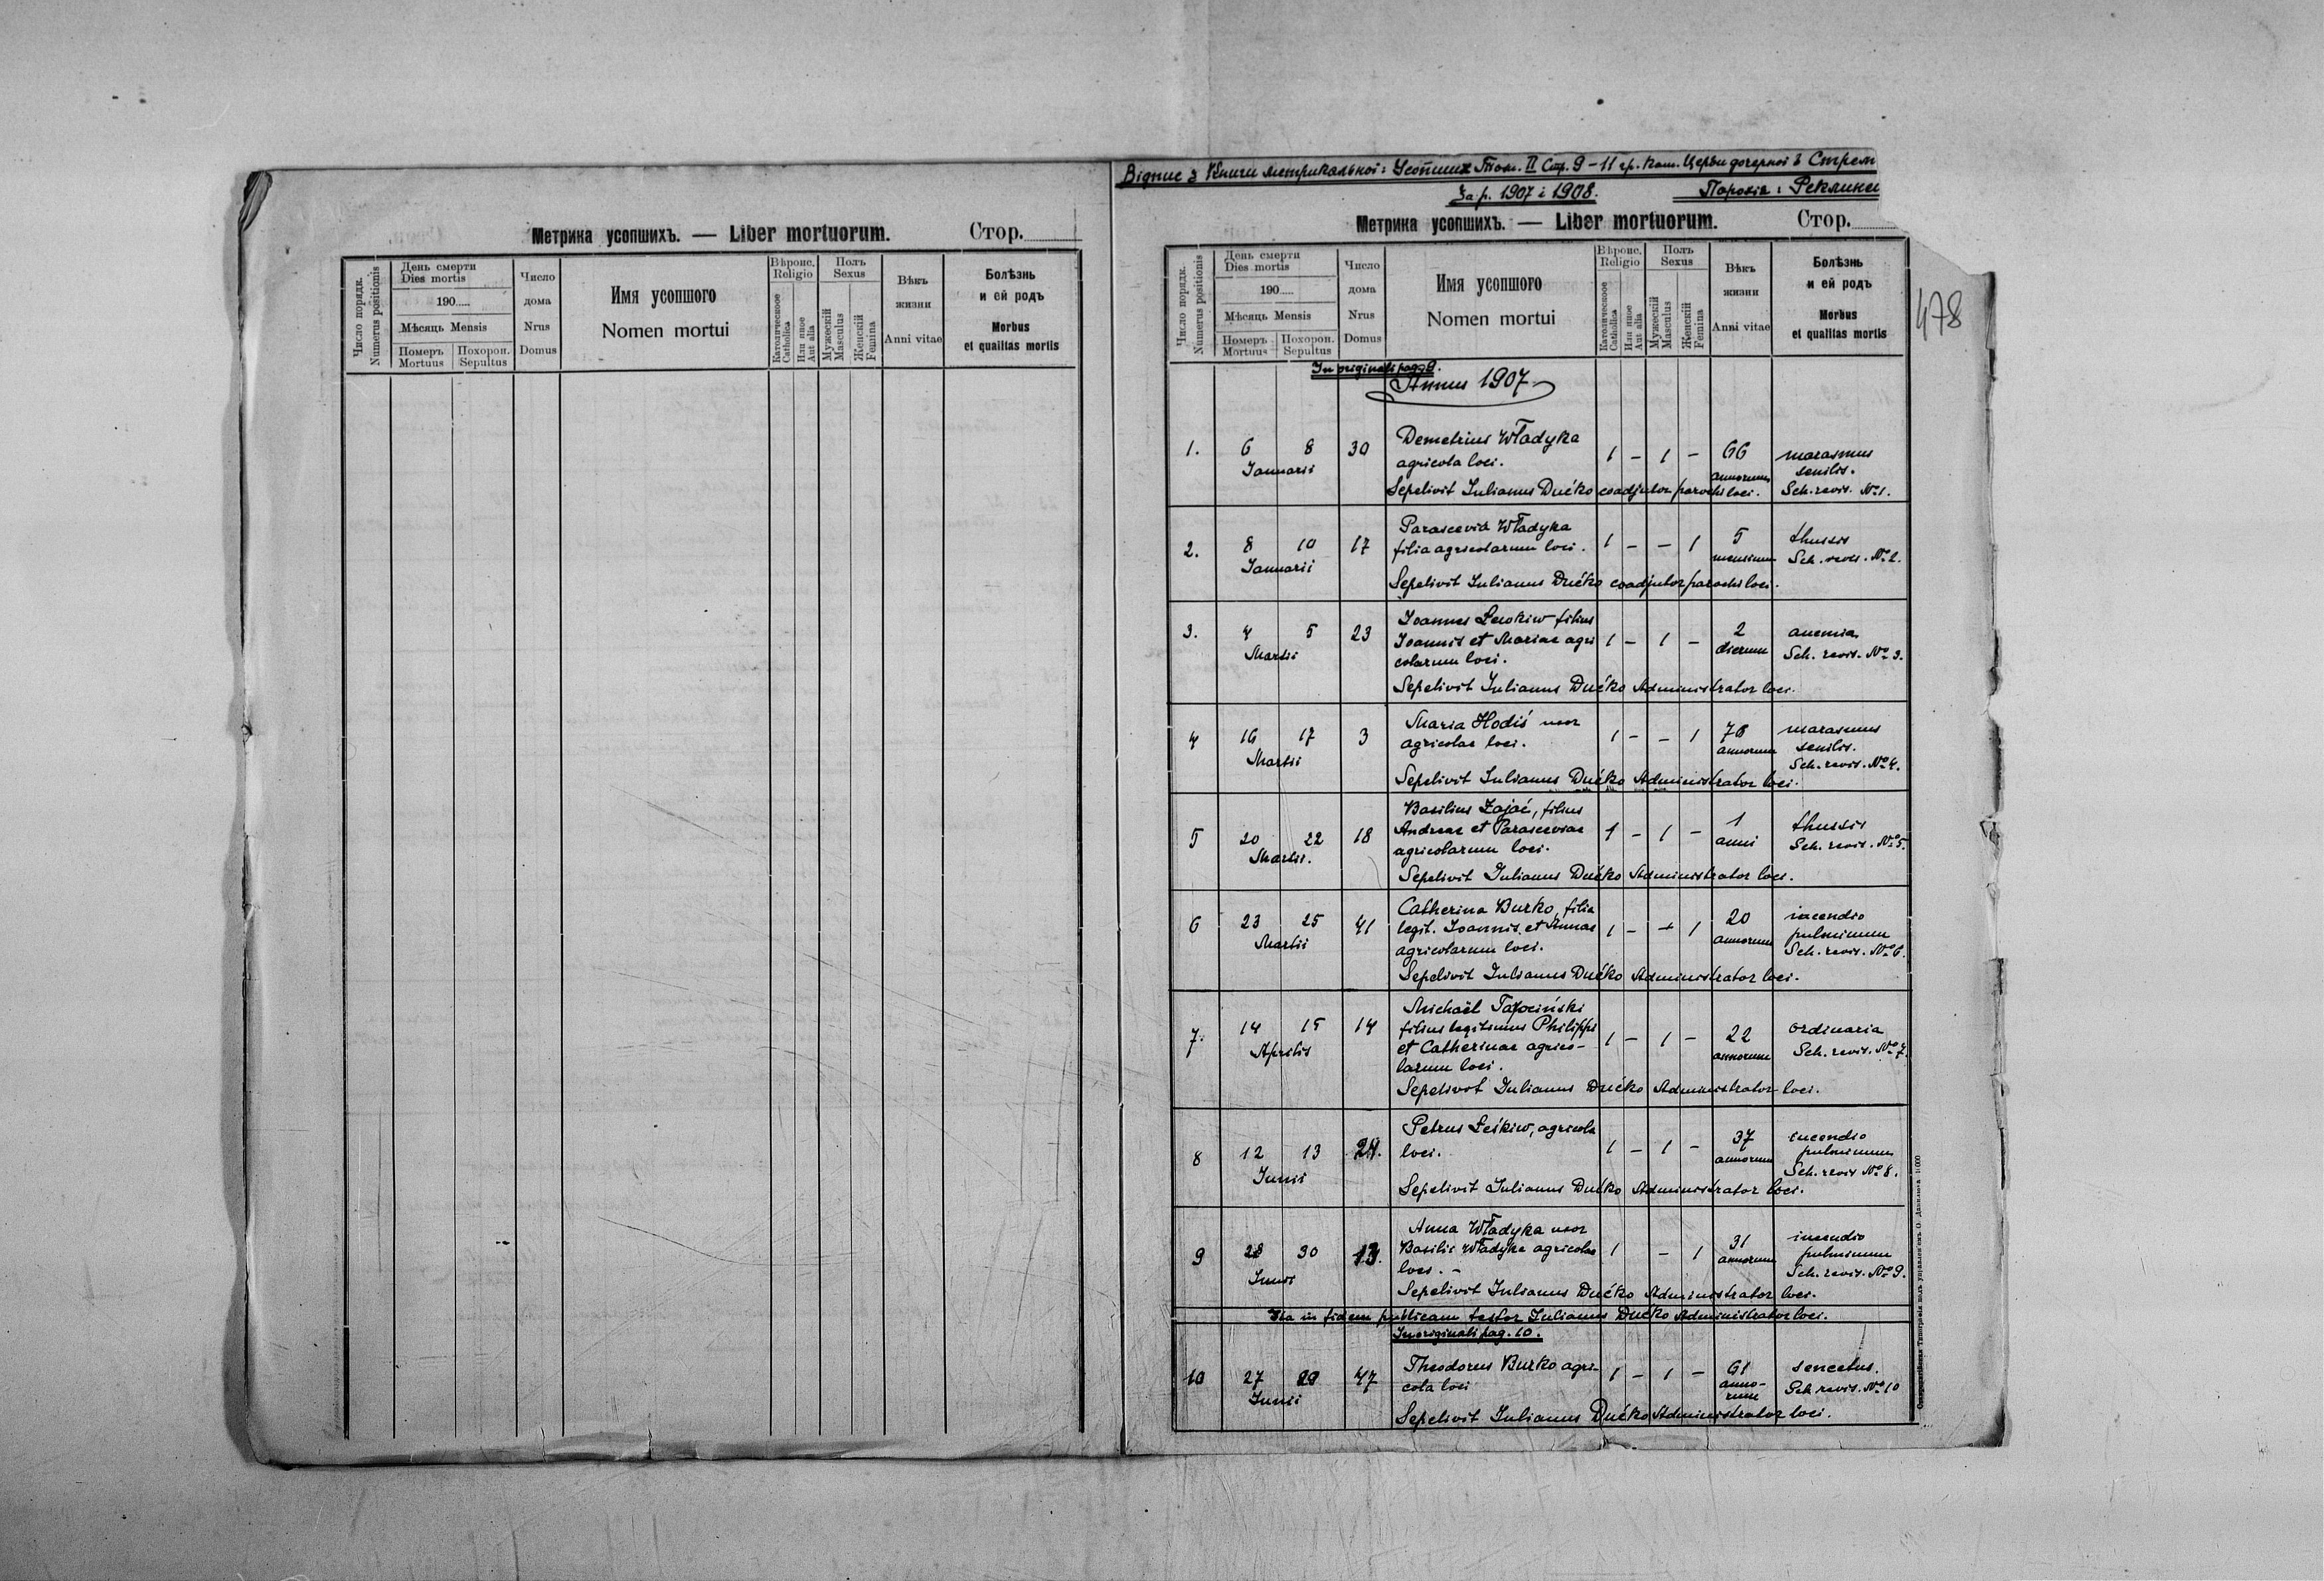 Метрика усопшихъ. — Liber mortuorum. Стор.
Число порядк. Numerus positionis
День смерти
Dies mortis
190.....
Мѣсяць Mensis
Померъ Mortuus
Похорон. Sepultus
Число дома Nrus Domus
Имя усопшого
Nomen mortui
Вѣроис. Religio
Католическое Catholica
Или иное Aut alia
Полъ Sexus
Мужескій Masculus
Женскій Femina
Вѣкъ жизни Anni vitae
Болѣзнь и ей родъ
Morbus et qualitas mortis
Відпис з Книги метрикальної: Усопших Том. II Стр. 9-11 гр. кат. Церкви дочерної в Стрем
За р. 1907 і 1908.
Парохія: Реклинец
478
Метрика усопшихъ. — Liber mortuorum. Стор.
Число порядк. Numerus positionis
День смерти
Dies mortis
190.....
Мѣсяць Mensis
Померъ Mortuus
Похорон. Sepultus
Число дома Nrus Domus
Имя усопшого
Nomen mortui
Вѣроис. Religio
Католическое Catholica
Или иное Aut alia
Полъ Sexus
Мужескій Masculus
Женскій Femina
Вѣкъ жизни Anni vitae
Болѣзнь и ей родъ
Morbus et qualitas mortis
In originali pag. 9.
Annus 1907
1. 6 8 Januarii 30 Demetrius Władyka 1 - 1 - 66 annorum marasmus senilis.
agricola loci.
Sepelivit Julianus Dućko coadjutor parochi loci. Sch. revis. No 1.
2. 8 10 Januarii 17 Parascevia Władyka 1 - - 1 5 mensium thussis
filia agricolarum loci. Sch. revis. No 2.
Sepelivit Julianus Dućko coadjutor parochi loci.
3. 4 5 Martii 23 Joannes filius 1 - 1 - 2 dierum anemia
Joannis et Mariae agri Sch. revis. No 3.
colarum loci.
Sepelivit Julianus Dućko Administrator loci.
4 16 17 Martii 3 Maria Hodiś uxor 1 - - 1 annorum marasmus senilis.
agricolae loci. Sch. revis. No 4.
Sepelivit Julianus Dućko Administrator loci.
5 20 22 Martii. 18 Basilius Zajać, filius 1 - 1 - 1 anni thussis
Andreae et Parasceviae Sch. revis. No 5.
agricolarum loci.
Sepelivit Julianus Dućko Administrator loci.
6 23 25 Martii 41 Catherina Burko, filia 1 - - 1 20 annorum incendio pulminum
legit. Joannis et Annae Sch. revis. No 6.
agricolarum loci.
Sepelivit Julianus Dućko Administrator loci.
7. 14 15 Aprilis 14 Michaël 1 - 1 - 22 annorum ordinaria
filius legitimus Philippi Sch. revis. No 7.
et Catherinae agrico-
larum loci.
Sepelivit Julianus Dućko Administrator loci.
8 12 13 Junii 24. Petrus Leśkiw, agricola 1 - 1 - 37 annorum incendio pulminum
loci. Sch. revis No 8.
Sepelivit Julianus Dućko Administrator loci.
9 28 30 Junii 13. Anna Władyka uxor 1 - 1 31 annorum incendio pulminum
Basilii Władyka agricolae Sch. revis. No 9.
loci. -
Sepelivit Julianus Dućko Administrator loci.
Ita in fidem publicam testor Julianus Dućko Administrator loci.
In originali pag. 10.
10 27 29 Junii 47 Theodorus Burko agri- 1 - 1 - 61 anno- rum senectus.
cola loci Sch revis. No 10
Sepelivit Julianus Dućko Administrator loci.